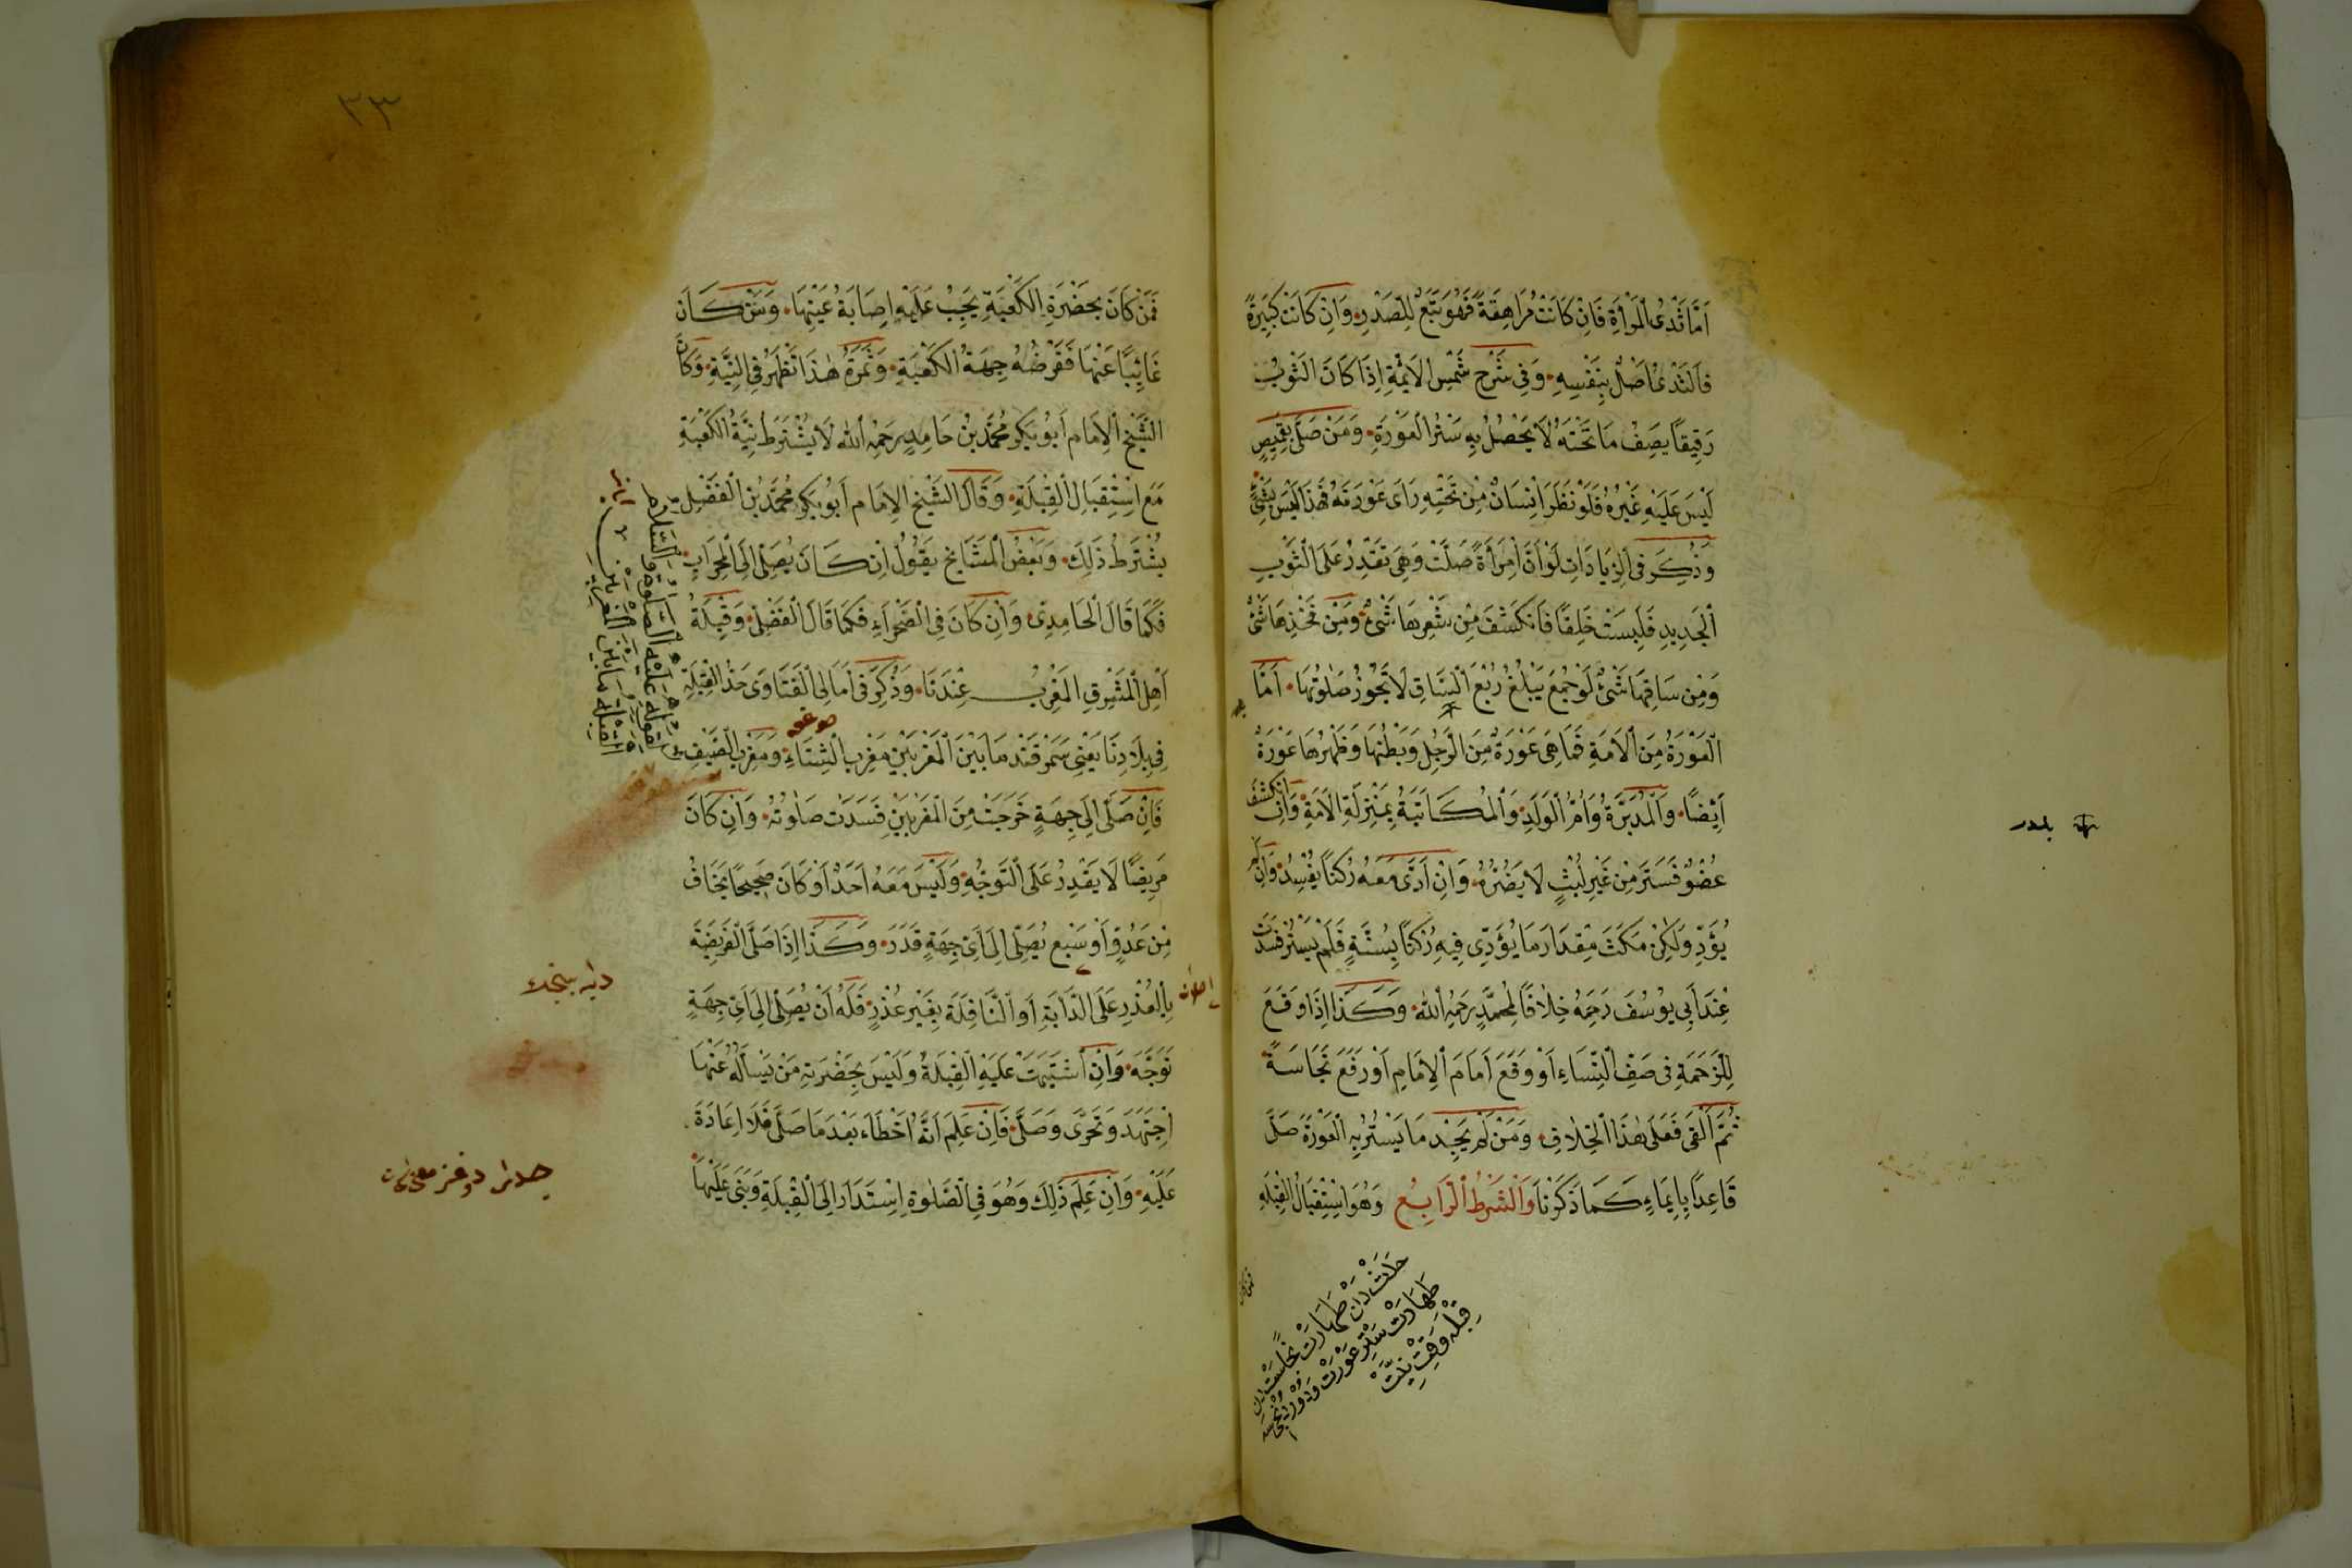 اَمَّا ثَدْىُ الْمَرْأَةِ فَاِنْ كَانَتْ مُرَاهِقَةً فَهُوَ تَبَعٌ لِلصَّدْرِ وَاِنْ كَانَتْ كَبِيرَةً
فَالثَّدْىُ اَصْلٌ بِنَفْسِهِ وَفِى شَرْحِ شَمْسِ الْاَئِمَّةِ اِذَا كَانَ الثَّوْبُ
رَقِيقًا يَصِفُ مَا تَحْتَهُ لَا يَحْصُلُ بِهِ سَتْرُ الْعَوْرَةِ وَمَنْ صَلَّى بِقَمِيصٍ
لَيْسَ عَلَيْهِ غَيْرُهُ فَلَوْ نَظَرَ اِنْسَانٌ مِنْ تَحْتِهِ رَاَى عَوْرَتَهُ فَهٰذَا لَيْسَ بِشَىْءٍ
وَذُكِرَ فِى الزِّيَادَاتِ لَوْ اَنَّ اِمْرَأَةً صَلَّتْ وَهِىَ تَقْدِرُ عَلَى الثَّوْبِ
الْجَدِيدِ فَلَبِسَتْ خَلِقًا فَانْكَشَفَ مِنْ شَعْرِهَا شَىْءٌ وَمِنْ فَخْذِهَا شَىْءٌ
وَمِنْ سَاقِهَا شَىْءٌ لَوْ جُمِعَ يَبْلُغُ رُبْعَ السَّاقِ لَا تَجُوزُ صَلٰوتُهَا اَمَّا
الْعَوْرَةُ مِنَ الْاَمَةِ فَمَا هِىَ عَوْرَةٌ مِنَ الرَّجُلِ وَبَطْنُهَا وَظَهْرُهَا عَوْرَةٌ
اَيْضًا وَالْمُدَبَّرَةُ وَاُمُّ الْوَلَدِ وَالْمُكَاتَبَةُ بِمَنْزِلَةِ الْاَمَةِ وَاِنِ انْكَشَفَ
عُضْوٌ فَسَتَرَ مِنْ غَيْرِ لُبْثٍ لَا يَضُرُّهُ وَاِنْ اَدَّى مَعَهُ رُكْنًا يُفْسِدُ وَاِنْ لَمْ
يُؤَدِّ وَلٰكِنْ مَكَثَ مِقْدَارَ مَا يُؤَدِّى فِيهِ رُكْنًا بِسُنَّةٍ فَلَمْ يَسْتُرْ فَسَدَتْ
عِنْدَ اَبِى يُوسُفَ رَحِمَهُ خِلَافًا لِمُحَمَّدٍ رَحِمَهُ اللّٰهُ وَكَذَا اِذَا وَقَعَ
لِلزَّحْمَةِ فِى صَفِّ النِّسَاءِ اَوْ وَقَعَ اَمَامَ الْاِمَامِ اَوْ رَفَعَ نَجَاسَةً
ثُمَّ اَلْقَى فَعَلَى هٰذَا الْخِلَافِ وَمَنْ لَمْ يَجِدْ مَا يَسْتُرُ بِهِ الْعَوْرَةَ صَلَّى
قَاعِدًا بِاِيمَاءٍ كَمَا ذَكَرْنَا وَالشَّرْطُ الرَّابِعُ وَهُوَ اسْتِقْبَالُ الْقِبْلَةِ
حَدَثْ دَنْ طَهَارَتْ نَجَاسَتْ دن
طَهَارَتْ سَتْرِ عَوْرَتْ
قِبْلَه وَقِتْ نِيَّتْ
٣٣
فَمَنْ كَانَ بِحَضْرَةِ الْكَعْبَةِ يَجِبُ عَلَيْهِ اِصَابَةُ عَيْنِهَا وَمَنْ كَانَ
غَائِبًا عَنْهَا فَفَرْضُهُ جِهَةُ الْكَعْبَةِ وَثَمَرَةُ هٰذَا تَظْهَرُ فِى النِّيَّةِ وَكَانَ
الشَّيْخُ الْاِمَامُ اَبُو بَكْرٍ مُحَمَّدُ بْنُ حَامِدٍ رَحِمَهُ اللّٰهُ لَا يُشْتَرَطُ نِيَّةُ الْكَعْبَةِ
مَعَ اسْتِقْبَالِ الْقِبْلَةِ وَقَالَ الشَّيْخُ الْاِمَامُ اَبُو بَكْرٍ مُحَمَّدُ بْنُ الْفَضْلِ
يُشْتَرَطُ ذٰلِكَ وَبَعْضُ الْمَشَايِخِ يَقُولُ اِنْ كَانَ يُصَلِّى اِلَى الْمِحْرَابِ
فَكَمَا قَالَ الْحَامِدِىُّ وَاِنْ كَانَ فِى الصَّحْرَاءِ فَكَمَا قَالَ الْفَضْلِىُّ وَقِبْلَةُ
اَهْلِ الْمَشْرِقِ الْمَغْرِبُ عِنْدَنَا وَذُكِرَ فِى اَمَالِى الْفَتَاوَى حَدُّ الْقِبْلَةِ
فِى بِلَادِنَا يَعْنِى سَمَرْقَنْدَ مَا بَيْنَ الْمَغْرِبَيْنِ مَغْرِبِ الشِّتَاءِ وَمَغْرِبِ الصَّيْفِ
فَاِنْ صَلَّى اِلَى جِهَةٍ خَرَجَتْ مِنَ الْمَغْرِبَيْنِ فَسَدَتْ صَلٰوتُهُ وَاِنْ كَانَ
مَرِيضًا لَا يَقْدِرُ عَلَى التَّوَجُّهِ وَلَيْسَ مَعَهُ اَحَدٌ اَوْ كَانَ صَحِيحًا يَخَافُ
مِنْ عَدُوٍّ اَوْ سَبُعٍ يُصَلِّى اِلَى اَىِّ جِهَةٍ قَدَرَ وَكَذَا اِذَا صَلَّى الْفَرِيضَةَ
بِالْعُذْرِ عَلَى الدَّابَّةِ اَوِ النَّافِلَةَ بِغَيْرِ عُذْرٍ فَلَهُ اَنْ يُصَلِّىَ اِلَى اَىِّ جِهَةٍ
تَوَجَّهَ وَاِنِ اشْتَبَهَتْ عَلَيْهِ الْقِبْلَةُ وَلَيْسَ بِحَضْرَتِهِ مَنْ يَسْأَلُهُ عَنْهَا
اِجْتَهَدَ وَتَحَرَّى وَصَلَّى فَاِنْ عَلِمَ اَنَّهُ اَخْطَاءَ بَعْدَ مَا صَلَّى فَلَا اِعَادَةَ
عَلَيْهِ وَاِنْ عَلِمَ ذٰلِكَ وَهُوَ فِى الصَّلٰوةِ اِسْتَدَارَ اِلَى الْقِبْلَةِ وَبَنَى عَلَيْهَا
لِقَوْلِهِ عَلَيْهِ الصَّلٰوةُ وَالسَّلَام
الْقِبْلَةُ مَا بَيْنَ الْمَغْرِبَيْنِ